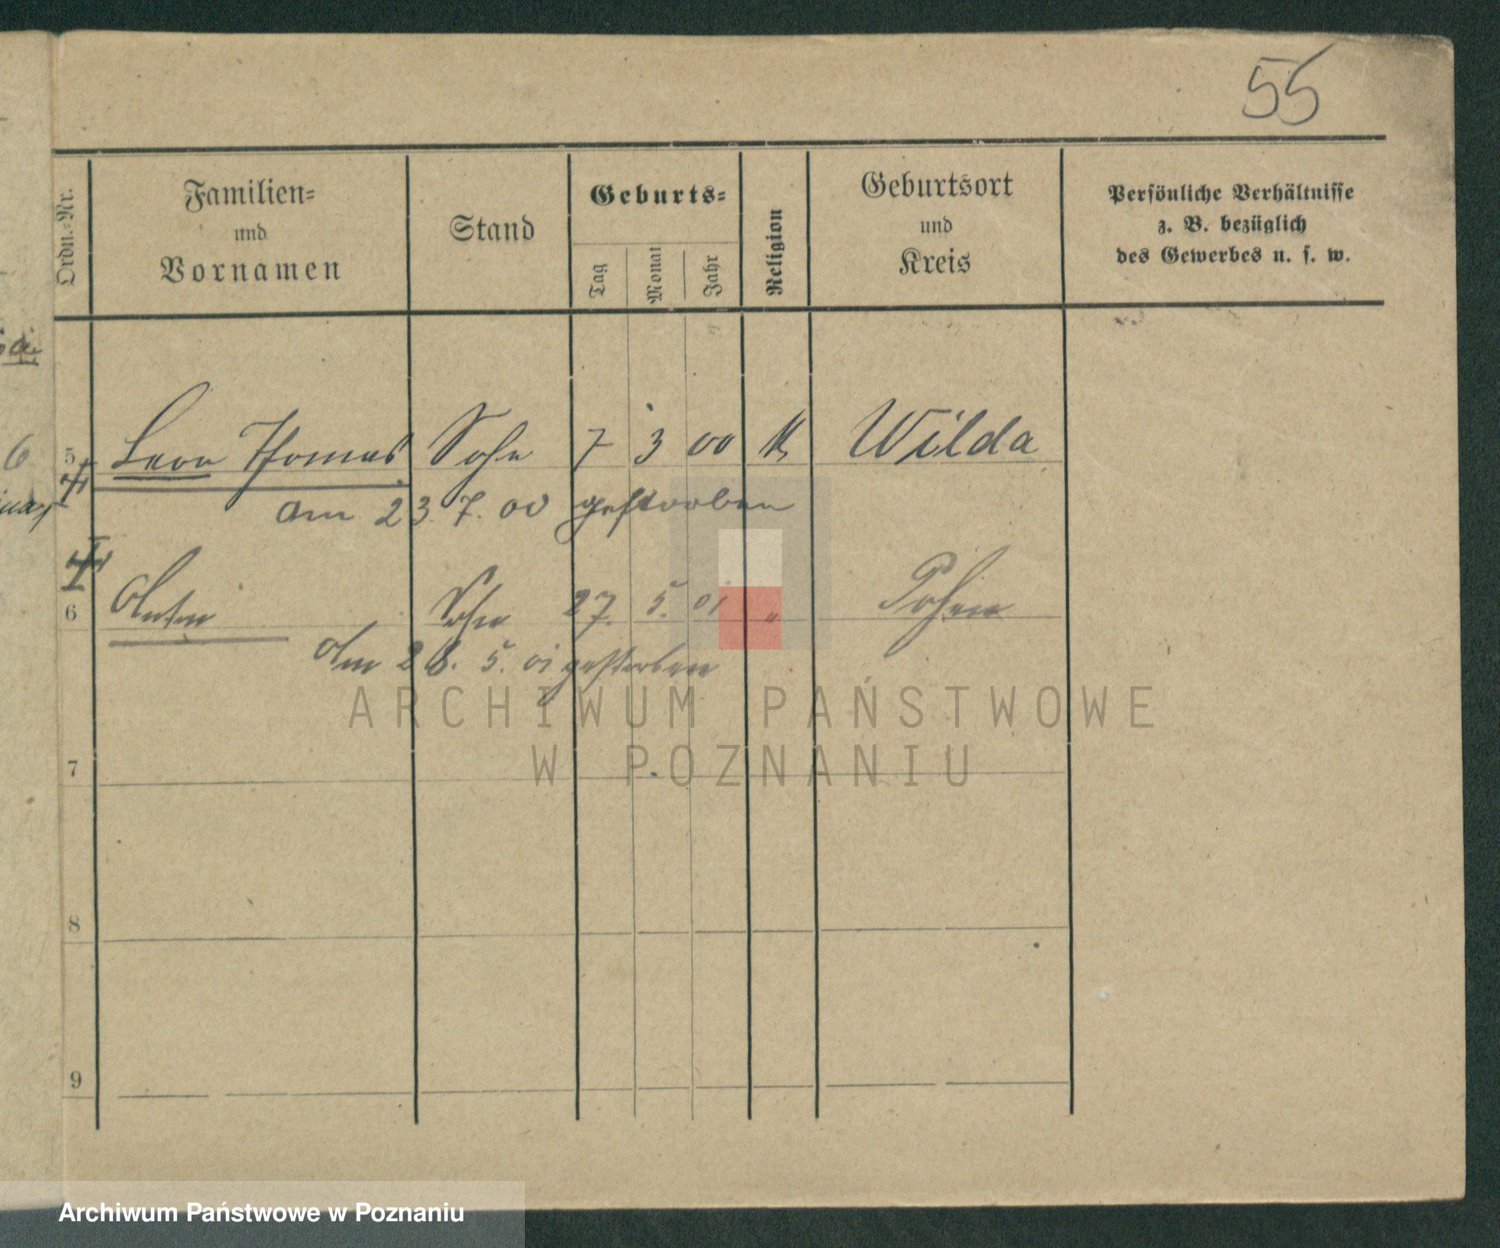 55
Ordn.-Nr.
Familien-
und
Vornamen
Stand
Geburts-
Tag
Monat
Jahr
Religion
Geburtsort
und
Kreis
Persönliche Verhältnisse
z. B. bezüglich
des Gewerbes u. s. w.
6
5 Leon Thomas Sohn 7 3 00 k Wilda
am 23. 7. 00 gestorben
6 Anton Sohn 27. 5. 01 "
Am 28. 5. 01 gestorben
ARCHIWUM PAŃSTWOWE
W POZNANIU
7
8
9
Archiwum Państwowe w Poznaniu